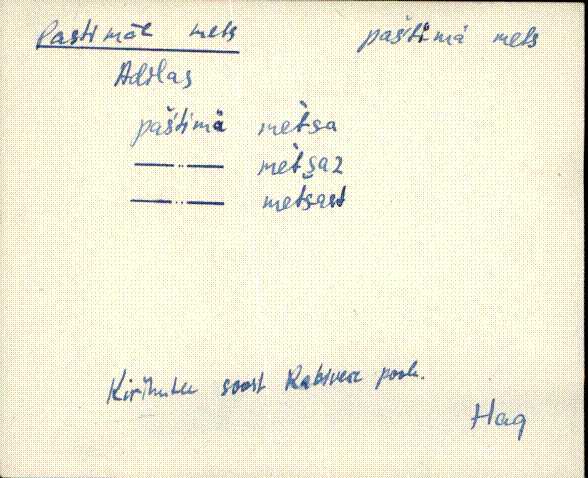 Pastimäe mets paštimä mets
Adilas
paštimä mètsa
—..— mètsaz
—..— metsast
soost Rabivere pool.
Hag